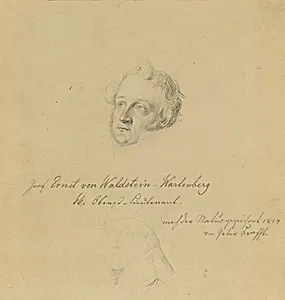 Graf Ernst von Waldstein-Wartenberg
K. Oberst-Lieutenant.
nach der Natur gezeichnet 1819
von Peter Krafft.